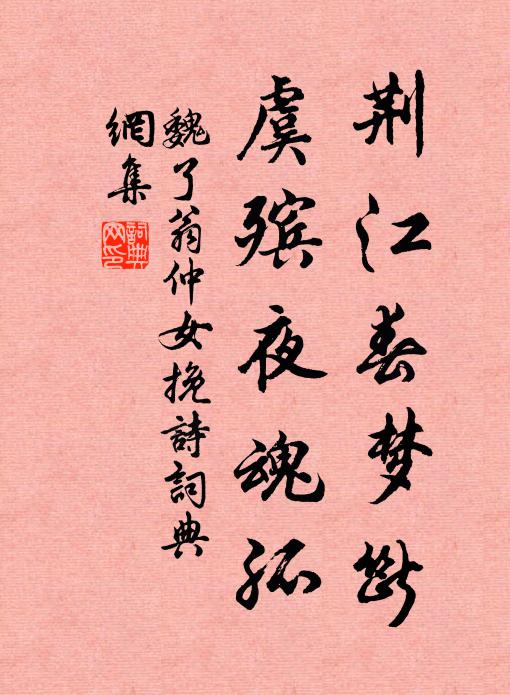 荆江春梦断
虞殡夜魂孤
魏了翁仲女挽詩詞典
網集
詞典
网印